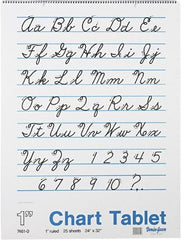 Aa Bb Cc Dd Ee
Ff Gg Hh Ii Jj
Kk Ll Mm Nn
Oo Pp Qq Rr Ss
Tt Uu Vv Ww Xx
Yy Zz 1 2 3 4 5
6 7 8 9 10 ?.
1"
Chart Tablet
7651-D 1" ruled 25 sheets 24" x 32"